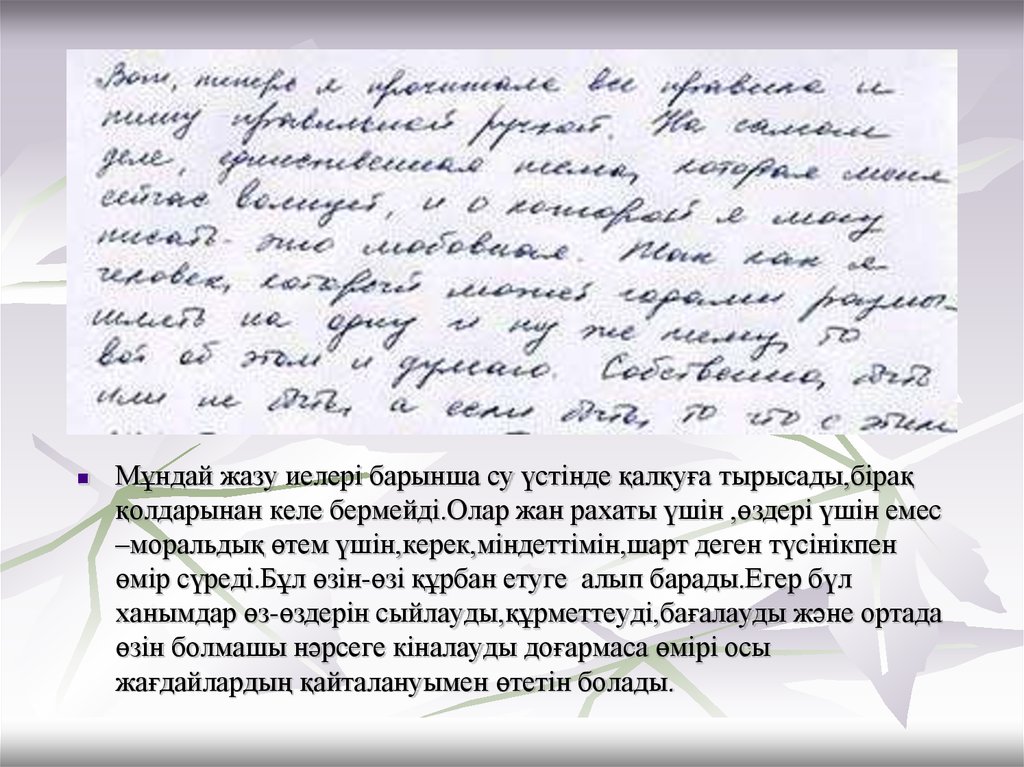 Вот, теперь я прочитала все правила и
пишу правильной ручкой. На самом
деле, единственная тема, которая меня
сейчас волнует, и о которой я могу
писать - это любовная. Так как я
человек, который может годами размы-
шлять на одну и ту же тему, то
вот об этом и думаю. Собственно, быть
или не быть, а если быть, то что с этим
Мұндай жазу иелері барынша су үстінде қалқуға тырысады,бірақ
қолдарынан келе бермейді.Олар жан рахаты үшін ,өздері үшін емес
–моральдық өтем үшін,керек,міндеттімін,шарт деген түсінікпен
өмір сүреді.Бұл өзін-өзі құрбан етуге алып барады.Егер бүл
ханымдар өз-өздерін сыйлауды,құрметтеуді,бағалауды және ортада
өзін болмашы нәрсеге кіналауды доғармаса өмірі осы
жағдайлардың қайталануымен өтетін болады.